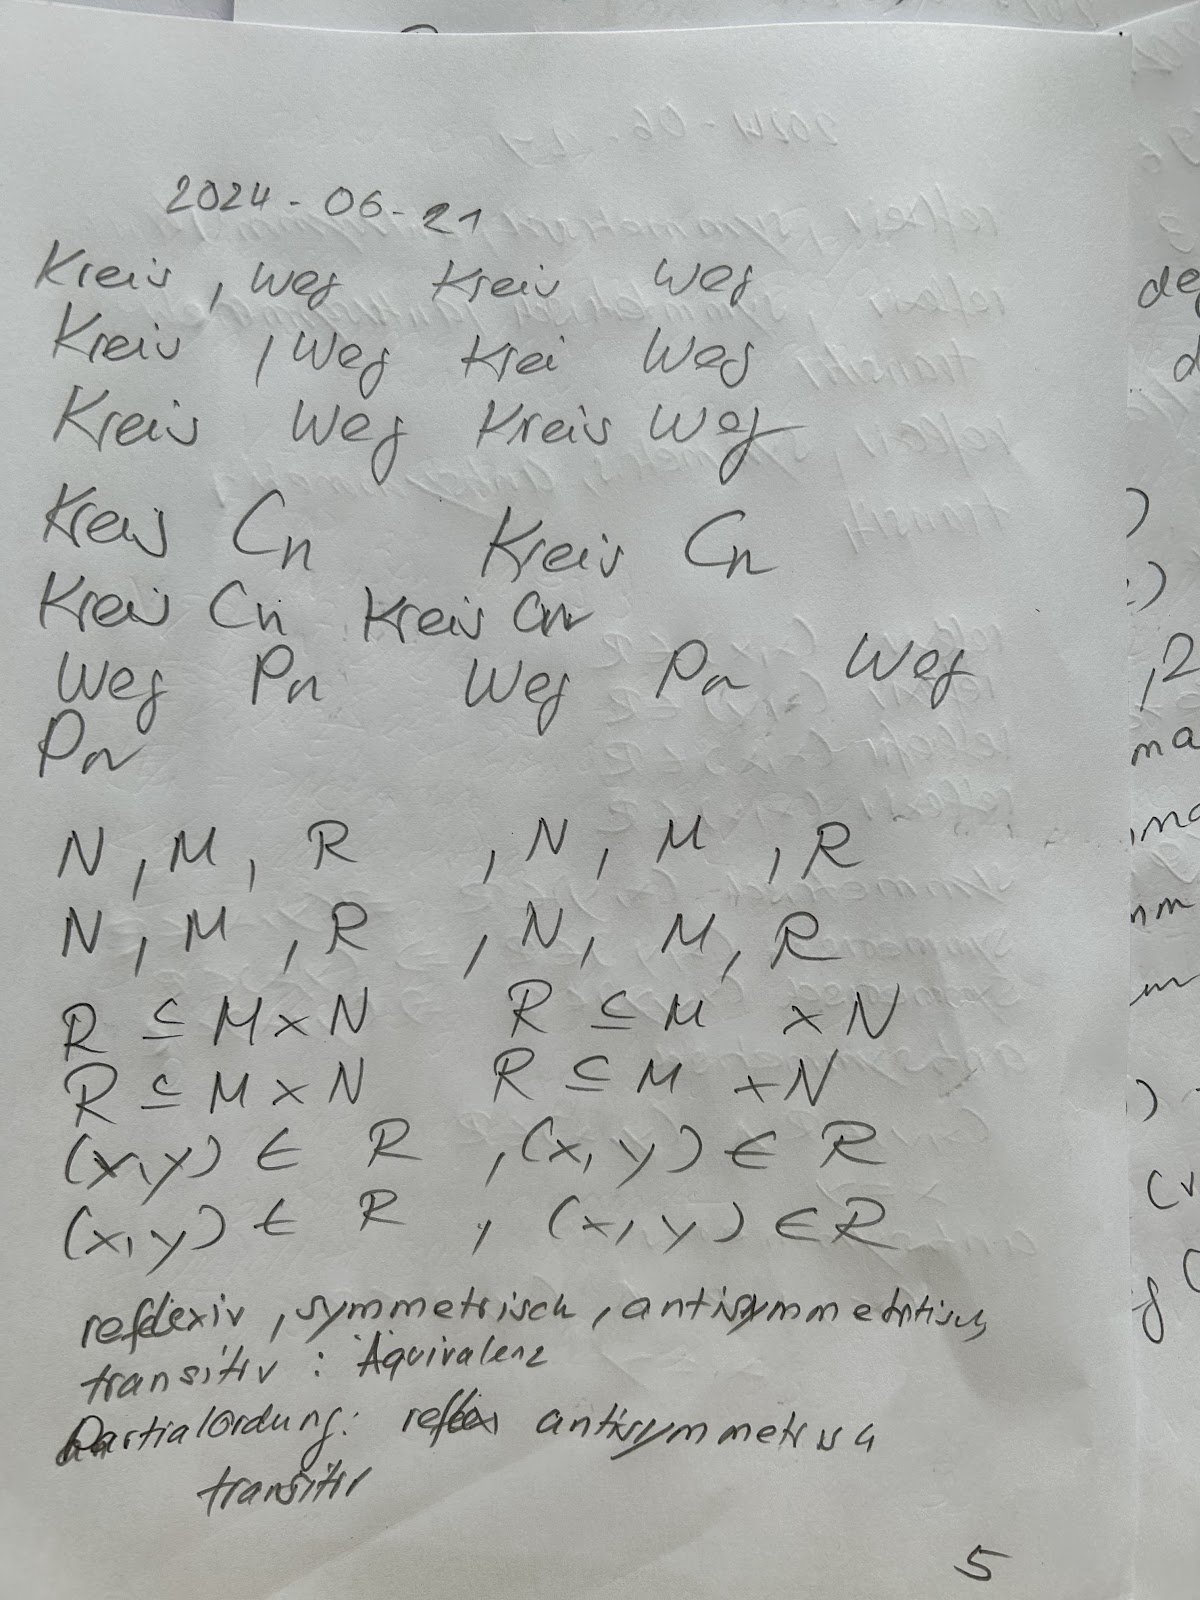 2024-06-21
Kreis, Weg Kreis Weg
Kreis, Weg Krei Weg
Kreis Weg Kreis Weg
Kreis Cn Kreis Cn
Kreis Cn Kreis Cn
Weg Pn Weg Pn Weg
Pn
N, M, R, N, M, R
N, M, R, N, M, R
R ⊆ M×N R ⊆ M ×N
R ⊆ M×N R ⊆ M ×N
(x,y) ∈ R, (x,y) ∈ R
(x,y) ∈ R, (x,y) ∈ R
reflexiv, symmetrisch,
transitiv: Äquivalenz
Partialordung: antisymmetrisch
transitiv
5